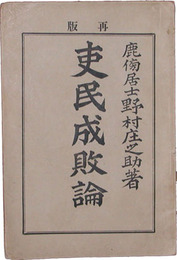 再版
鹿傷居士野村庄之助著
吏民成敗論